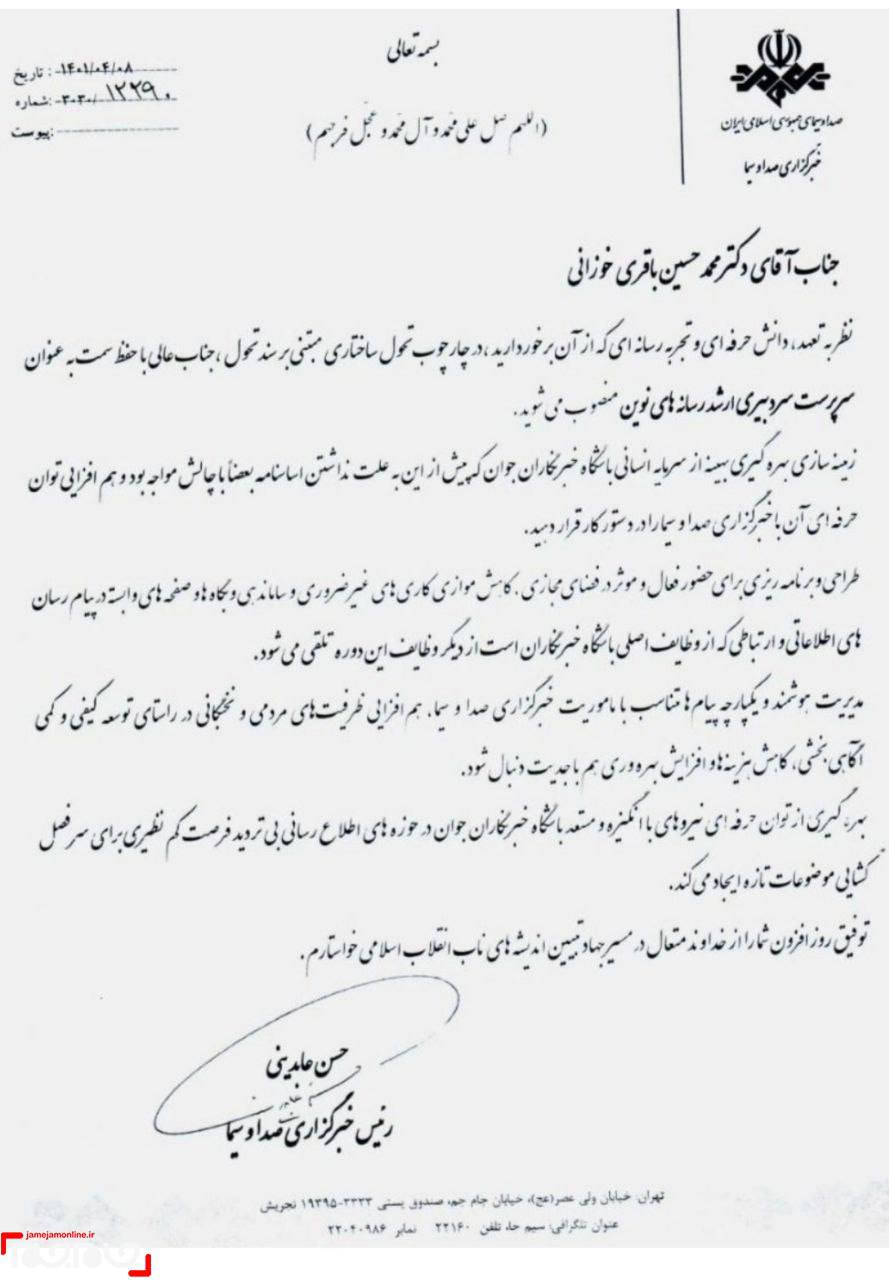 بسمه تعالی
(اللهم صل علی محمد و آل محمد و عجّل فرجهم)
صدا و سیمای جمهوری اسلامی ایران
خبرگزاری صدا و سیما
تاریخ: ۱۴۰۱/۰۴/۰۸
شماره: ۳۰۳۰/۱۲۲۹۰
پیوست:
جناب آقای دکتر محمد حسین باقری خوزانی
نظر به تعهد، دانش حرفه ای و تجربه رسانه ای که از آن برخوردارید، در چارچوب تحول ساختاری مبتنی بر سند تحول، جناب عالی با حفظ سمت به عنوان
سرپرست سردبیری ارشد رسانه های نوین منصوب می شوید.
زمینه سازی بهره گیری بهینه از سرمایه انسانی باشگاه خبرنگاران جوان که پیش از این به علت نداشتن اساسنامه بعضاً با چالش مواجه بود و هم افزایی توان
حرفه ای آن با خبرگزاری صدا و سیما را در دستور کار قرار دهید.
طراحی و برنامه ریزی برای حضور فعال و موثر در فضای مجازی، کاهش موازی کاری های غیرضروری و ساماندهی وبگاه ها و صفحه های وابسته در پیام رسان
های اطلاعاتی و ارتباطی که از وظایف اصلی باشگاه خبرنگاران است از دیگر وظایف این دوره تلقی می شود.
مدیریت هوشمند و یکپارچه پیام ها متناسب با ماموریت خبرگزاری صدا و سیما، هم افزایی ظرفیت های مردمی و نخبگانی در راستای توسعه کیفی و کمی
آگاهی بخشی، کاهش هزینه ها و افزایش بهره وری هم با جدیت دنبال شود.
بهره گیری از توان حرفه ای نیروهای با انگیزه و مستعد باشگاه خبرنگاران جوان در حوزه های اطلاع رسانی بی تردید فرصت کم نظیری برای سرفصل
گشایی موضوعات تازه ایجاد می کند.
توفیق روز افزون شما را از خداوند متعال در مسیر جهاد تبیین اندیشه های ناب انقلاب اسلامی خواستارم.
حسن عابدینی
رئیس خبرگزاری صدا و سیما
تهران: خیابان ولی عصر(عج)، خیابان جام جم، صندوق پستی ۳۳۳۳-۱۹۳۹۵ تجریش
عنوان تلگرافی: سیم حا، تلفن ۲۲۱۶۰ نمابر ۲۲۰۴۰۹۸۶
jamejamonline.ir